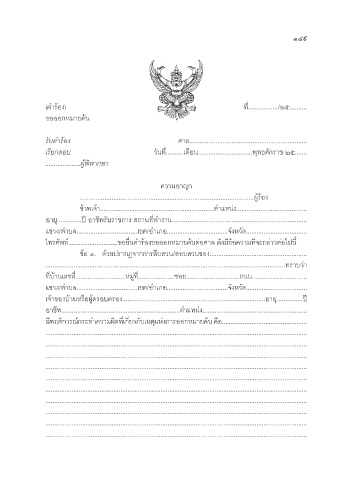 ๑๔๕
(คำร้อง) ที่................./๒๕..........
ขอออกหมายค้น
รับคำร้อง ศาล......................................................................
เรียกสอบ วันที่..........เดือน................................พุทธศักราช ๒๕.......
.....................ผู้พิพากษา
ความอาญา
.....................................................................................ผู้ร้อง
ข้าพเจ้า...................................................................ตำแหน่ง..........................................
อายุ..............ปี อาชีพรับราชการ สถานที่ทำงาน................................................................................
แขวง/ตำบล....................................เขต/อำเภอ....................................จังหวัด................................................
โทรศัพท์.............................ขอยื่นคำร้องขอออกหมายค้นต่อศาล ดังมีข้อความที่จะกล่าวต่อไปนี้
ข้อ ๑. ด้วยปรากฏจากการสืบสวน/สอบสวนของ..........................................................
..............................................................................................................................................ทราบว่า
ที่บ้านเลขที่..............................หมู่ที่.....................ซอย................................ถนน........................................
แขวง/ตำบล....................................เขต/อำเภอ....................................จังหวัด................................................
เจ้าของบ้านหรือผู้ครอบครอง.....................................................................................อายุ................ปี
อาชีพ......................................................................ตำแหน่ง..............................................................
มีพฤติการณ์กระทำความผิดที่เกี่ยวกับเหตุแห่งการออกหมายค้น คือ..................................................